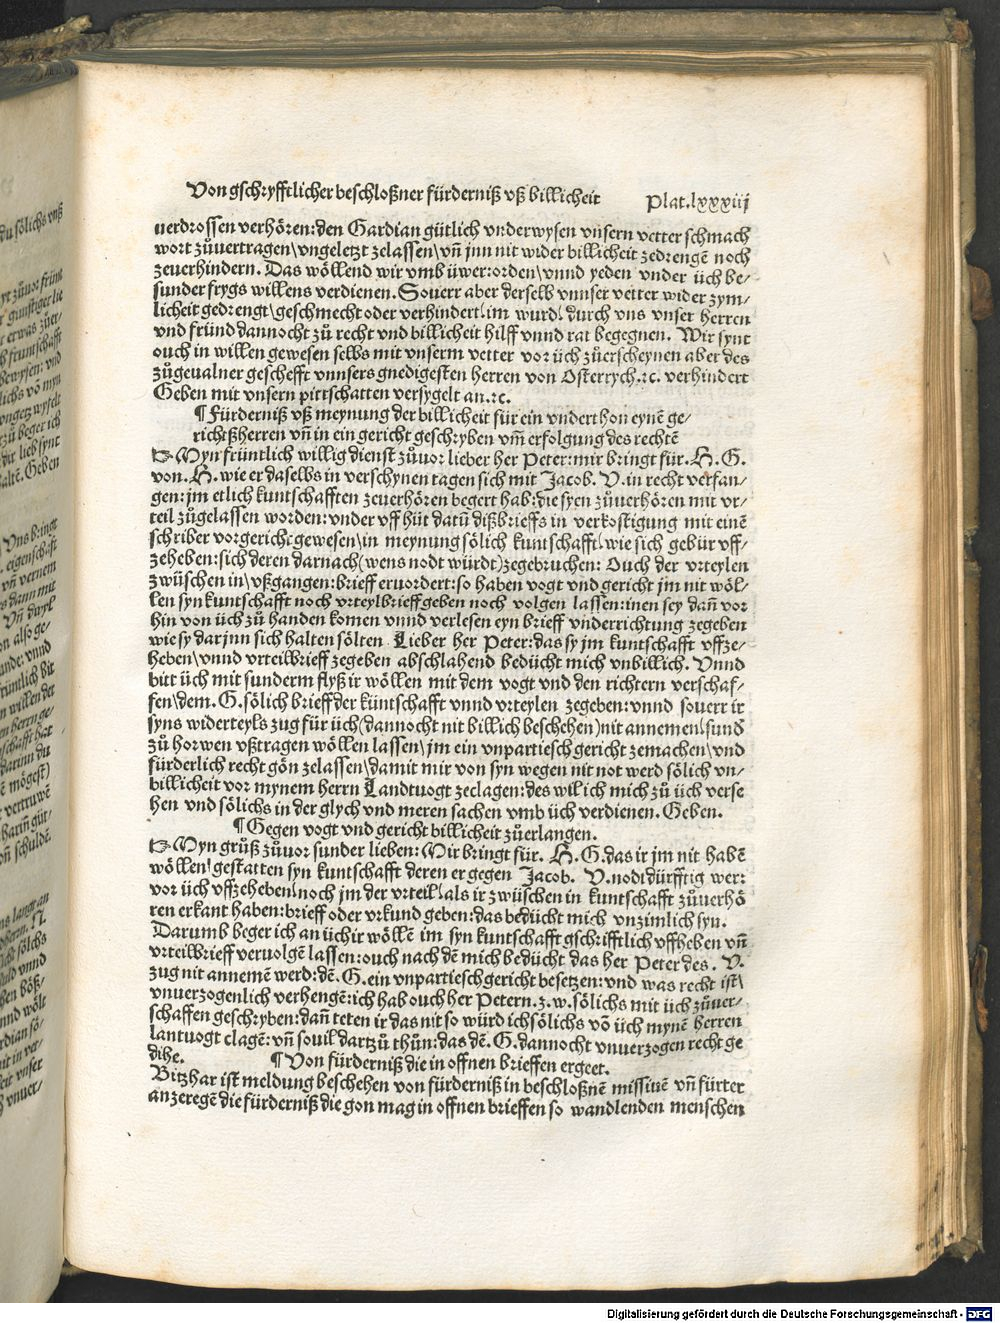 Von gschryfftlicher beschloßner fürderniß vß billicheit Plat.lxxxiij
uerdrossen verhören: den Gardian gütlich vnderwysen vnsern vetter schmach
wort zůuertragen\vngeletzt zelassen\vn̄ jnn nit wider billicheit zedrengē noch
zeuerhindern. Das wöllend wir vmb üwer: orden\vnnd yeden vnder üch be⸗
sunder frygs willens verdienen. Souerr aber derselb vnnser vetter wider zym⸗
licheit gedrengt\geschmecht oder verhindert\im wurd\durch vns vnser herren
vnd fründ dannocht zů recht vnd billicheit hilff vnnd rat begegnen. Wir synt
ouch in willen gewesen selbs mit vnserm vetter vor üch zůerscheynen aber des
zůgeualner geschefft vnnsers gnedigesten herren von Osterrych.ꝛc. verhindert
Geben mit vnsern pittschatten versygelt an.ꝛc.
¶ Fürderniß vß meynung der billicheit für ein vnderthon eynē ge⸗
richtßherren vn̄ in ein gericht geschryben vm̄ erfolgung des rechtē
☞ Myn früntlich willig dienst zůuor lieber her Peter: mir bringt für. H. G.
von. H. wie er daselbs in verschynen tagen sich mit Jacob. V. in recht verfan⸗
gen: jm etlich kuntschafften zeuerhören begert hab: die syen zůuerhören mit vr⸗
teil zůgelassen worden: vnder vff hüt datū dißbrieffs in verkostigung mit einē
schriber vorgericht gewesen\in meynung sölich kuntschafft\wie sich gebür vff⸗
zeheben: sich deren darnach (wens nodt würdt) zegebruchen: Ouch der vrteylen
zwüschen in\vßgangen: brieff eruordert: so haben vogt vnd gericht jm nit wöl⸗
len syn kuntschafft noch vrteylbrieff geben noch volgen lassen: inen sey dan̄ vor
hin von üch zů handen komen vnnd verlesen eyn brieff vnderrichtung zegeben
wie sy dar jnn sich halten sölten Lieber her Peter: das sy jm kuntschafft vffze⸗
heben\vnnd vrteilbrieff zegeben abschlahend bedücht mich vnbillich. Vnnd
bitt üch mit sunderm flyß ir wöllen mit dem vogt vnd den richtern verschaf⸗
fen\dem. G. sölich brieff der küntschafft vnnd vrteylen zegeben: vnnd souerr ir
syns widerteyls zug für üch (dannocht nit billich beschehen) nit annemen\sund
zů horwen vßtragen wöllen lassen\jm ein vnpartiesch gericht zemachen\vnd
fürderlich recht gön zelassen\damit mir von syn wegen nit not werd sölich vn⸗
billicheit vor mynem herrn Landtuogt zeclagen: des wil ich mich zů üch verse
hen vnd sölichs in der glych vnd meren sachen vmb üch verdienen. Geben.
¶ Gegen vogt vnd gericht billicheit zůerlangen.
☞ Myn grüß zůuor sunder lieben: Mir bringt für. H. G. das ir jm nit habē
wöllen\gestatten syn kuntschafft deren er gegen Jacob. V. nodtdürfftig wer:
vor üch vffzeheben\noch jm der vrteil\als ir zwüschen in kuntschafft zůuerhö
ren erkant haben: brieff oder vrkund geben: das bedücht mich vnzimlich syn.
Darumb beger ich an üch ir wöllē im syn kuntschafft gschrifftlich vffheben vn̄
vrteilbrieff veruolgē lassen: ouch nach dē mich bedücht das her Peter des. V.
zug nit annemē werd: dē. G. ein vnpartiesch gericht besetzen: vnd was recht ist\
vnuerzogenlich verhengē: ich hab ouch her Petern.z.w. sölichs mit üch zůuer⸗
schaffen geschryben: dan̄ teten ir das nit so würd ich sölichs vō üch mynē herren
lantuogt clagē: vn̄ souil dartzů thůn: das dē. G. dannocht vnuerzogen recht ge
dihe. ¶ Von fürderniß die in offnen brieffen ergeet.
Bitzhar ist meldung beschehen von fürderniß in beschloßnē missiuē vn̄ fürter
anzeregē die fürderniß die gon mag in offnen brieffen so wandlenden menschen
Digitalisierung gefördert durch die Deutsche Forschungsgemeinschaft - DFG